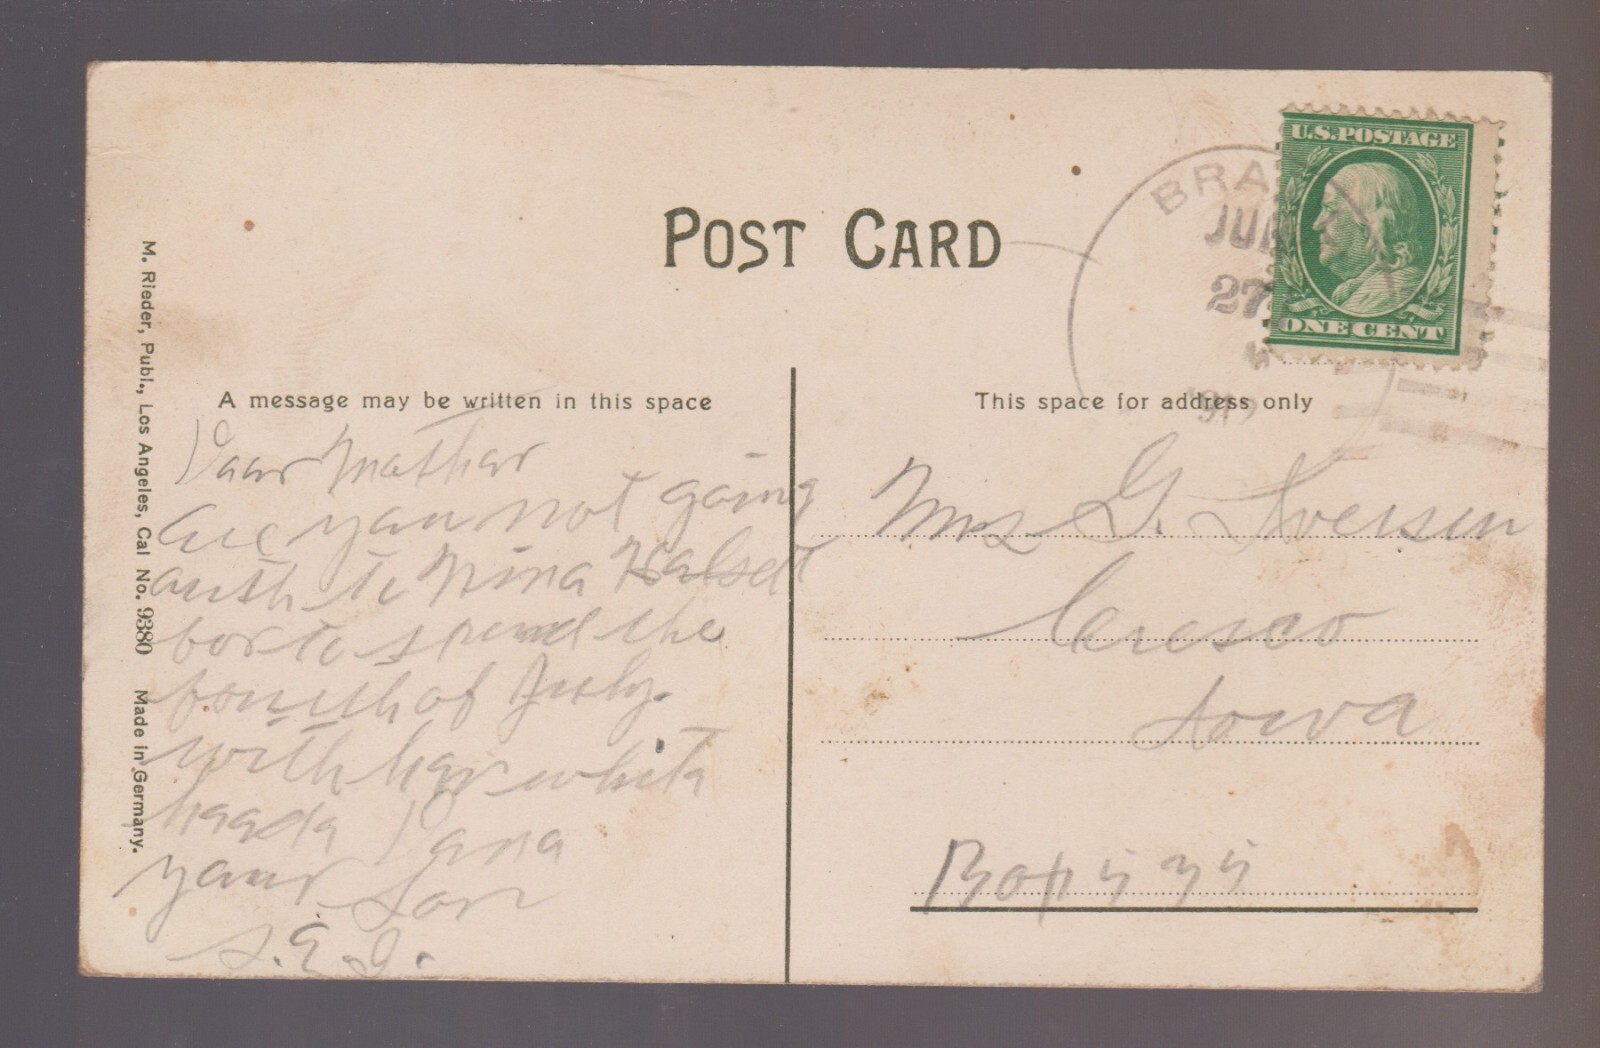 POST CARD
U.S. POSTAGE
ONE CENT
BRA
JU
27
191
A message may be written in this space
This space for address only
M. Rieder, Publ., Los Angeles, Cal No. 9380 Made in Germany.
Dear Mother
Are you not going
to Nina Halsett
to spend the
fourth of July.
with her white
your Son
S. E. I.
Mrs G. Iversen
Cresco
Iowa
Box